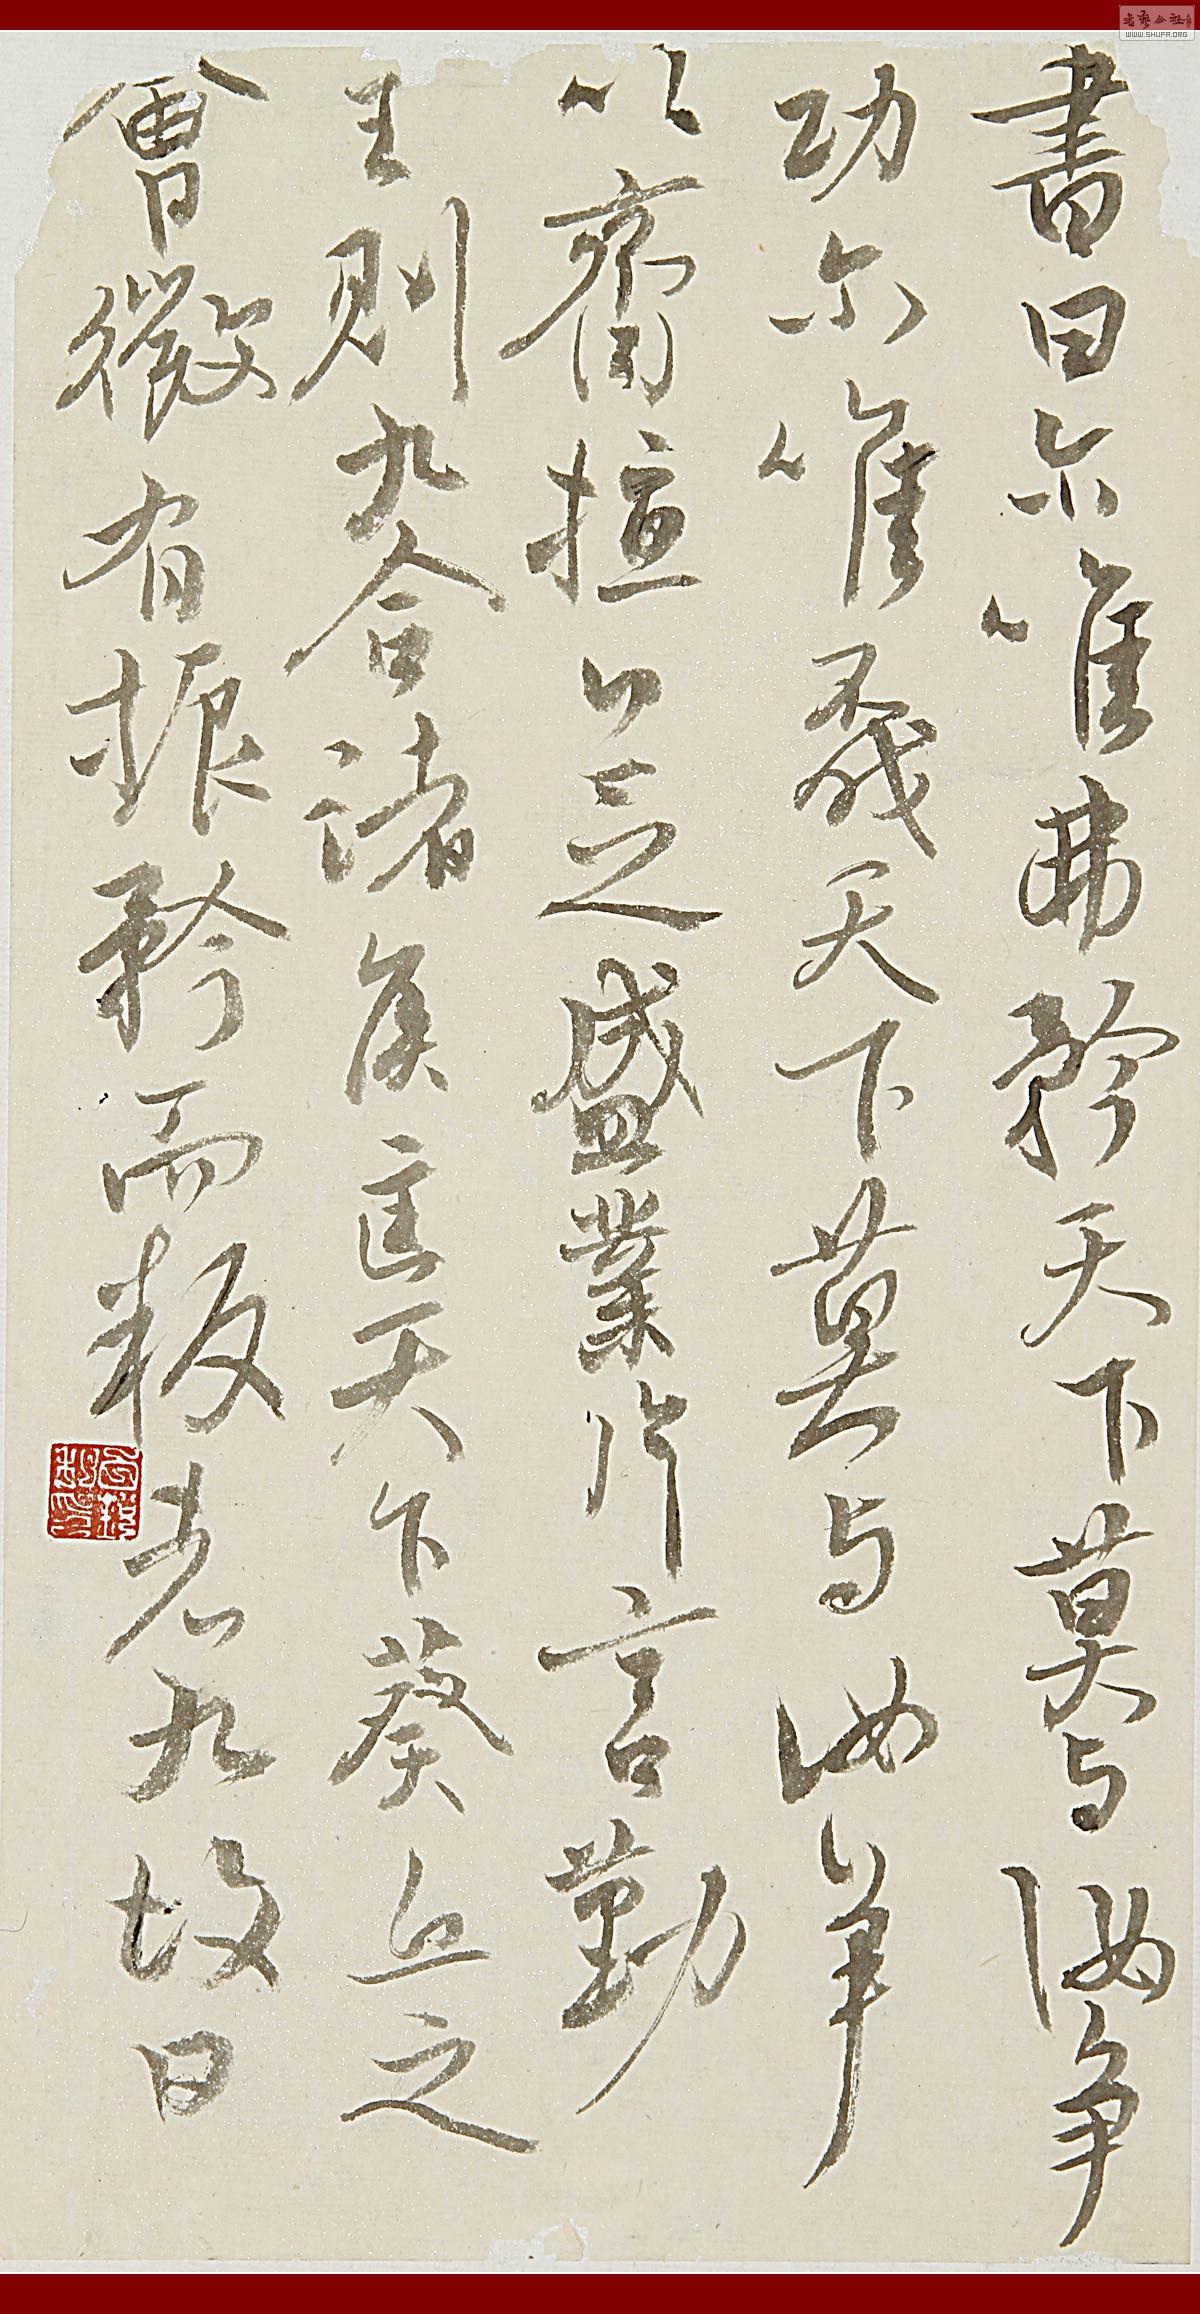 書曰尔唯弗矜天下莫与汝争
功尔唯不伐天下莫与汝争
以齊桓公之盛業片言勤
王則九合諸侯一匡天下葵丘之
會微有振矜而叛者九故曰
书艺公社
WWW.SHUFA.ORG